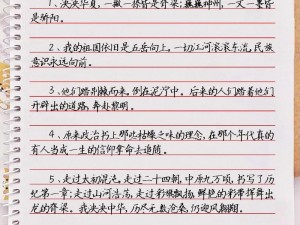 1、泱泱华夏，一撇一捺皆是脊梁；巍巍神州，一文一墨皆
是骄阳。
2、我的祖国依旧是五岳向上，一切江河滚滚东流，民族
意识永远向前。
3、他们踏荆棘而来，倒在泥泞中。后来的人们踏着他们
开辟出的道路，奔赴黎明。
4、原来政治书上那些枯燥乏味的理念，在那个年代真的
有人当成一生的信仰拿命去追随。
5、走过太初混沌，走过三十四朝，中原九万顷，书写了历
纪第一章；走过山河浩荡，走过彩旗飘扬，鲜艳的彩带挥舞出
龙的脊梁。我泱泱中华，历尽无数沧桑，仍迎风翱翔。